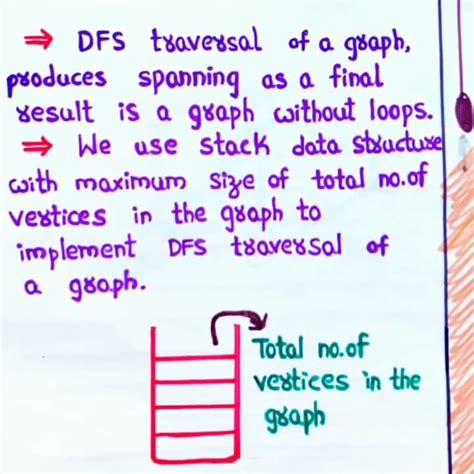 ⇒ DFS traversal of a graph,
produces spanning as a final
result is a graph without loops.
⇒ We use stack data structure
with maximum size of total no.of
vertices in the graph to
implement DFS traversal of
a graph.
Total no.of
vertices in the
graph